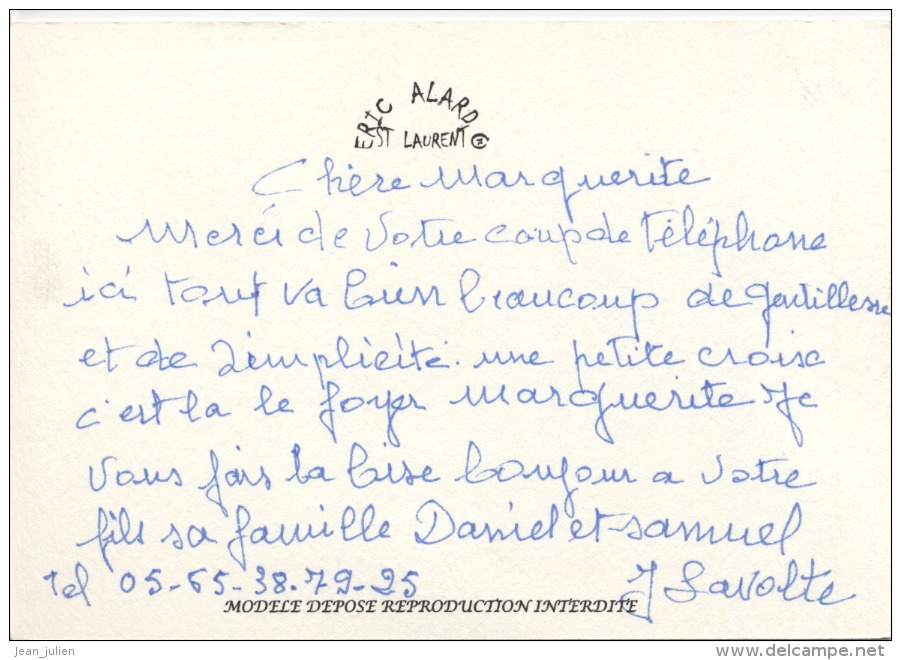 ERIC ALARD
ST LAURENT ©
Chère Marguerite
Merci de votre coup de téléphone
ici tout va bien beaucoup de gentillesse
et de simplicité. une petite croix
c'est la le foyer Marguerite Je
vous fais la bise bonjour a votre
fils sa famille Daniel et Samuel
Tel 05-65-38-79-25 J Lavolte
MODELE DEPOSE REPRODUCTION INTERDITE
jean_julien
www.delcampe.net